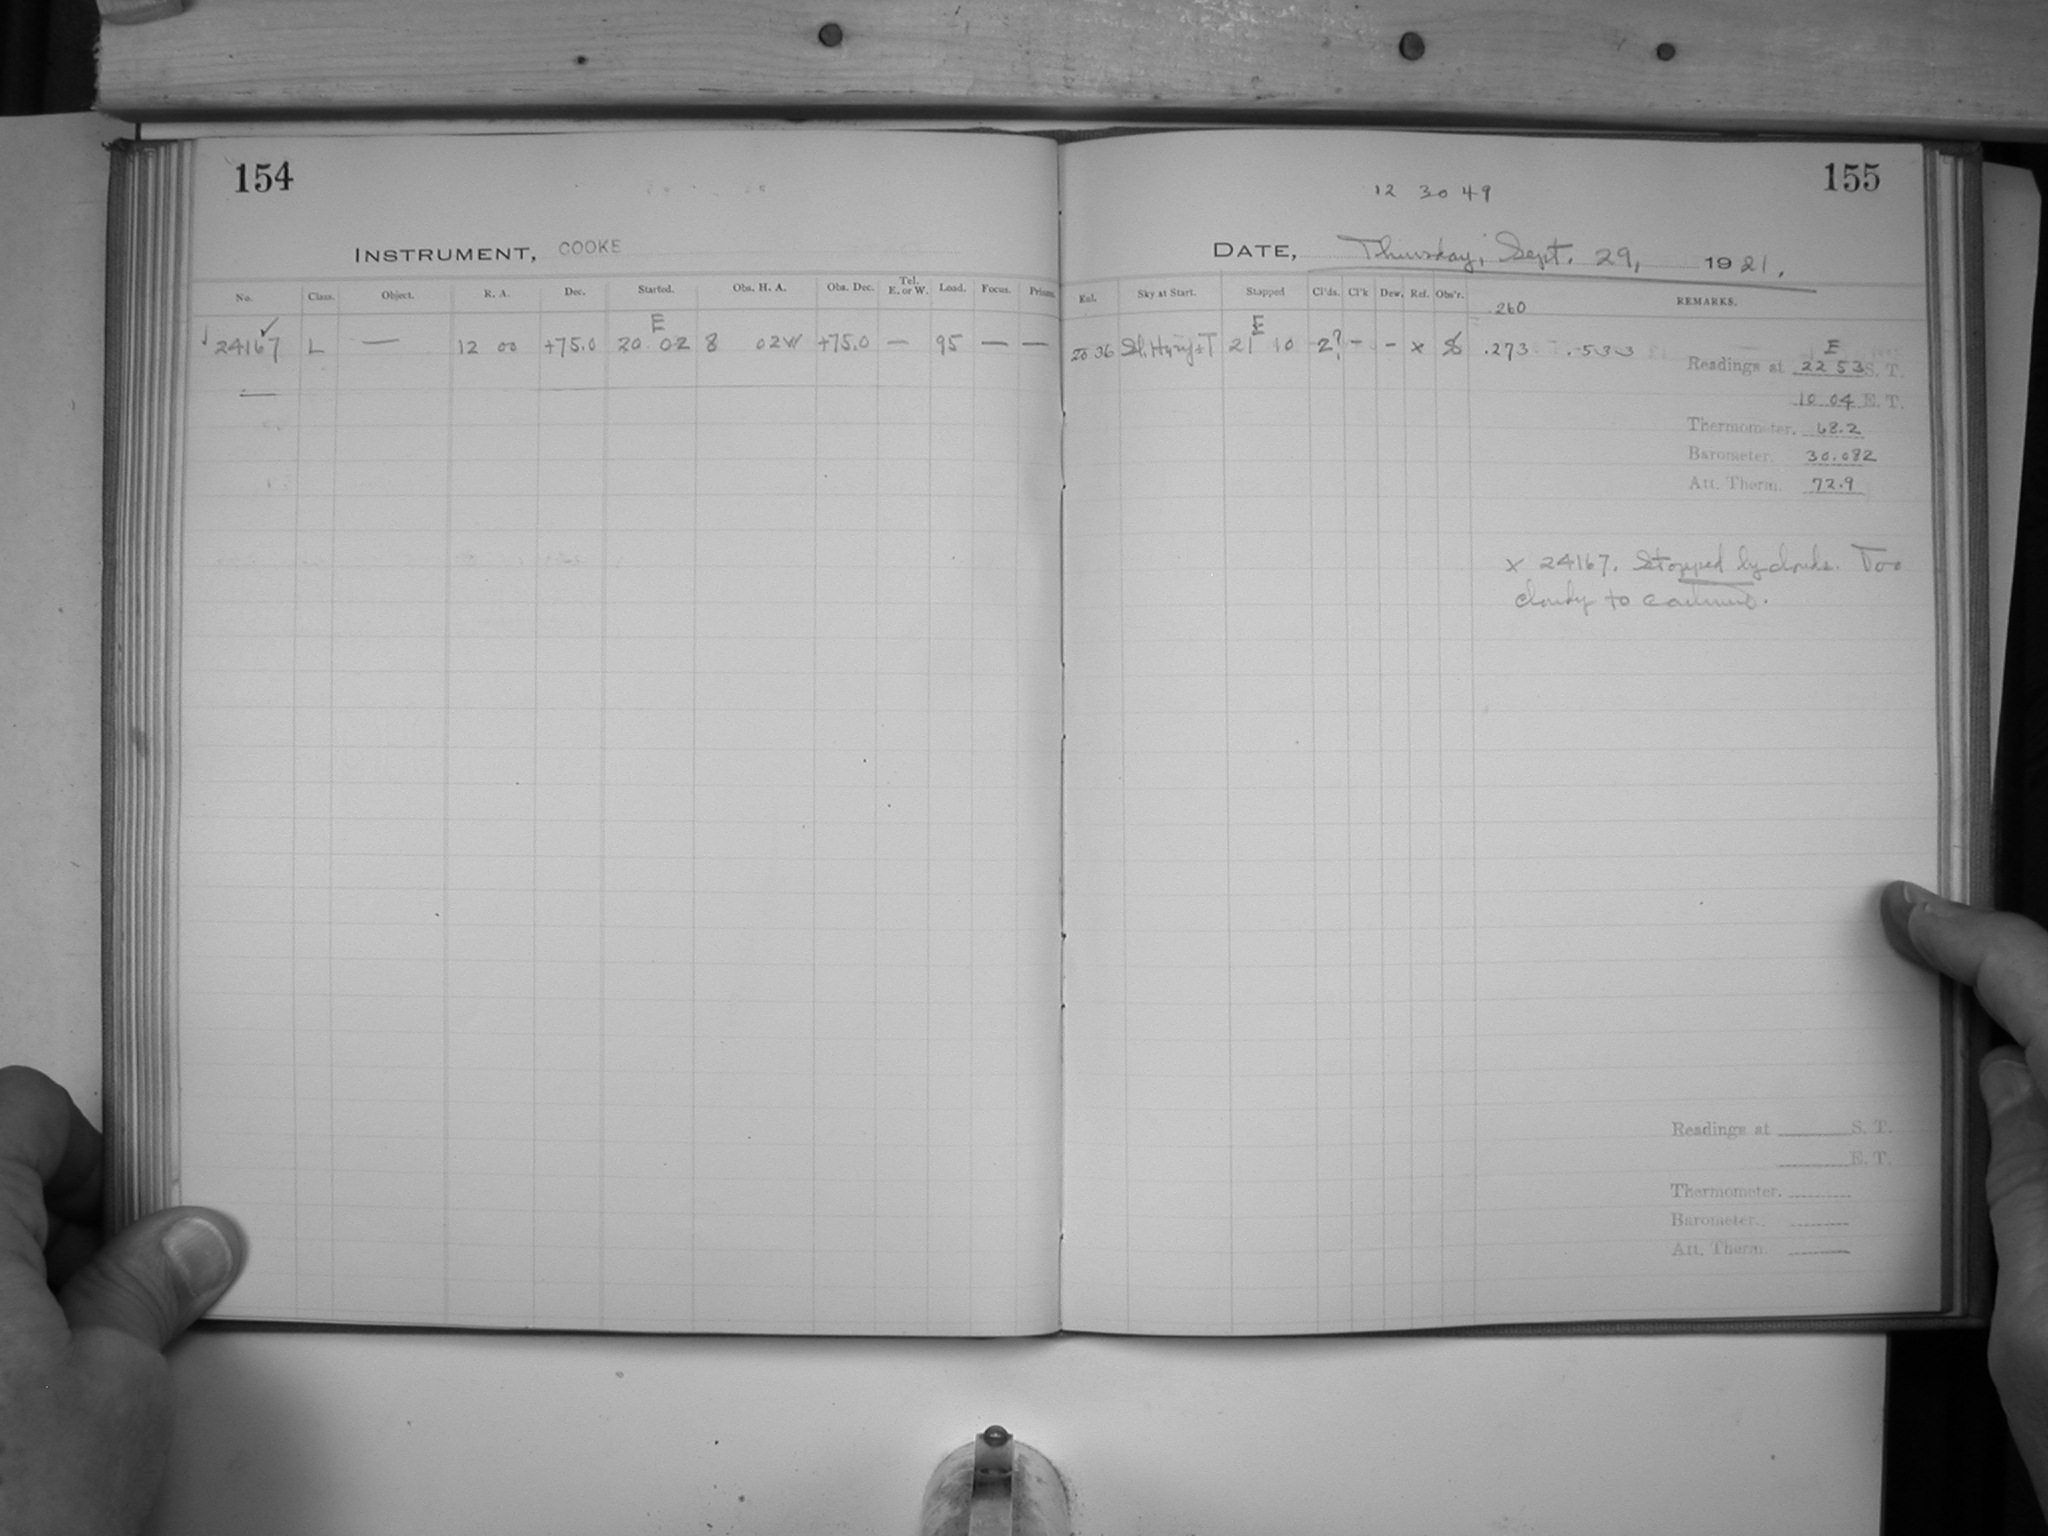 154
INSTRUMENT, COOKE
No. Class. Object. R. A. Dec. Started. Obs. H. A. Obs. Dec. Tel. E. or W. Load. Focus. Prism.
E
24167 L — 12 00 +75.0 20 02 8 02W +75.0 — 95 — —
12 30 49
155
DATE, Thursday, Sept. 29, 1921.
Sky at Start. Stopped Cl'ds. Cl'k Dew. Ref. Obs'r. REMARKS.
.260
E
20 36 Sl. Hazy+T 21 10 2? - - x .273 .533
E
Readings at 22 53 S. T.
10 04 E. T.
Thermometer. 68.2
Barometer. 30.082
Att. Therm. 72.9
x 24167. Stopped by clouds. Too
cloudy to continue.
Readings at S. T.
E. T.
Thermometer.
Barometer.
Att. Therm.